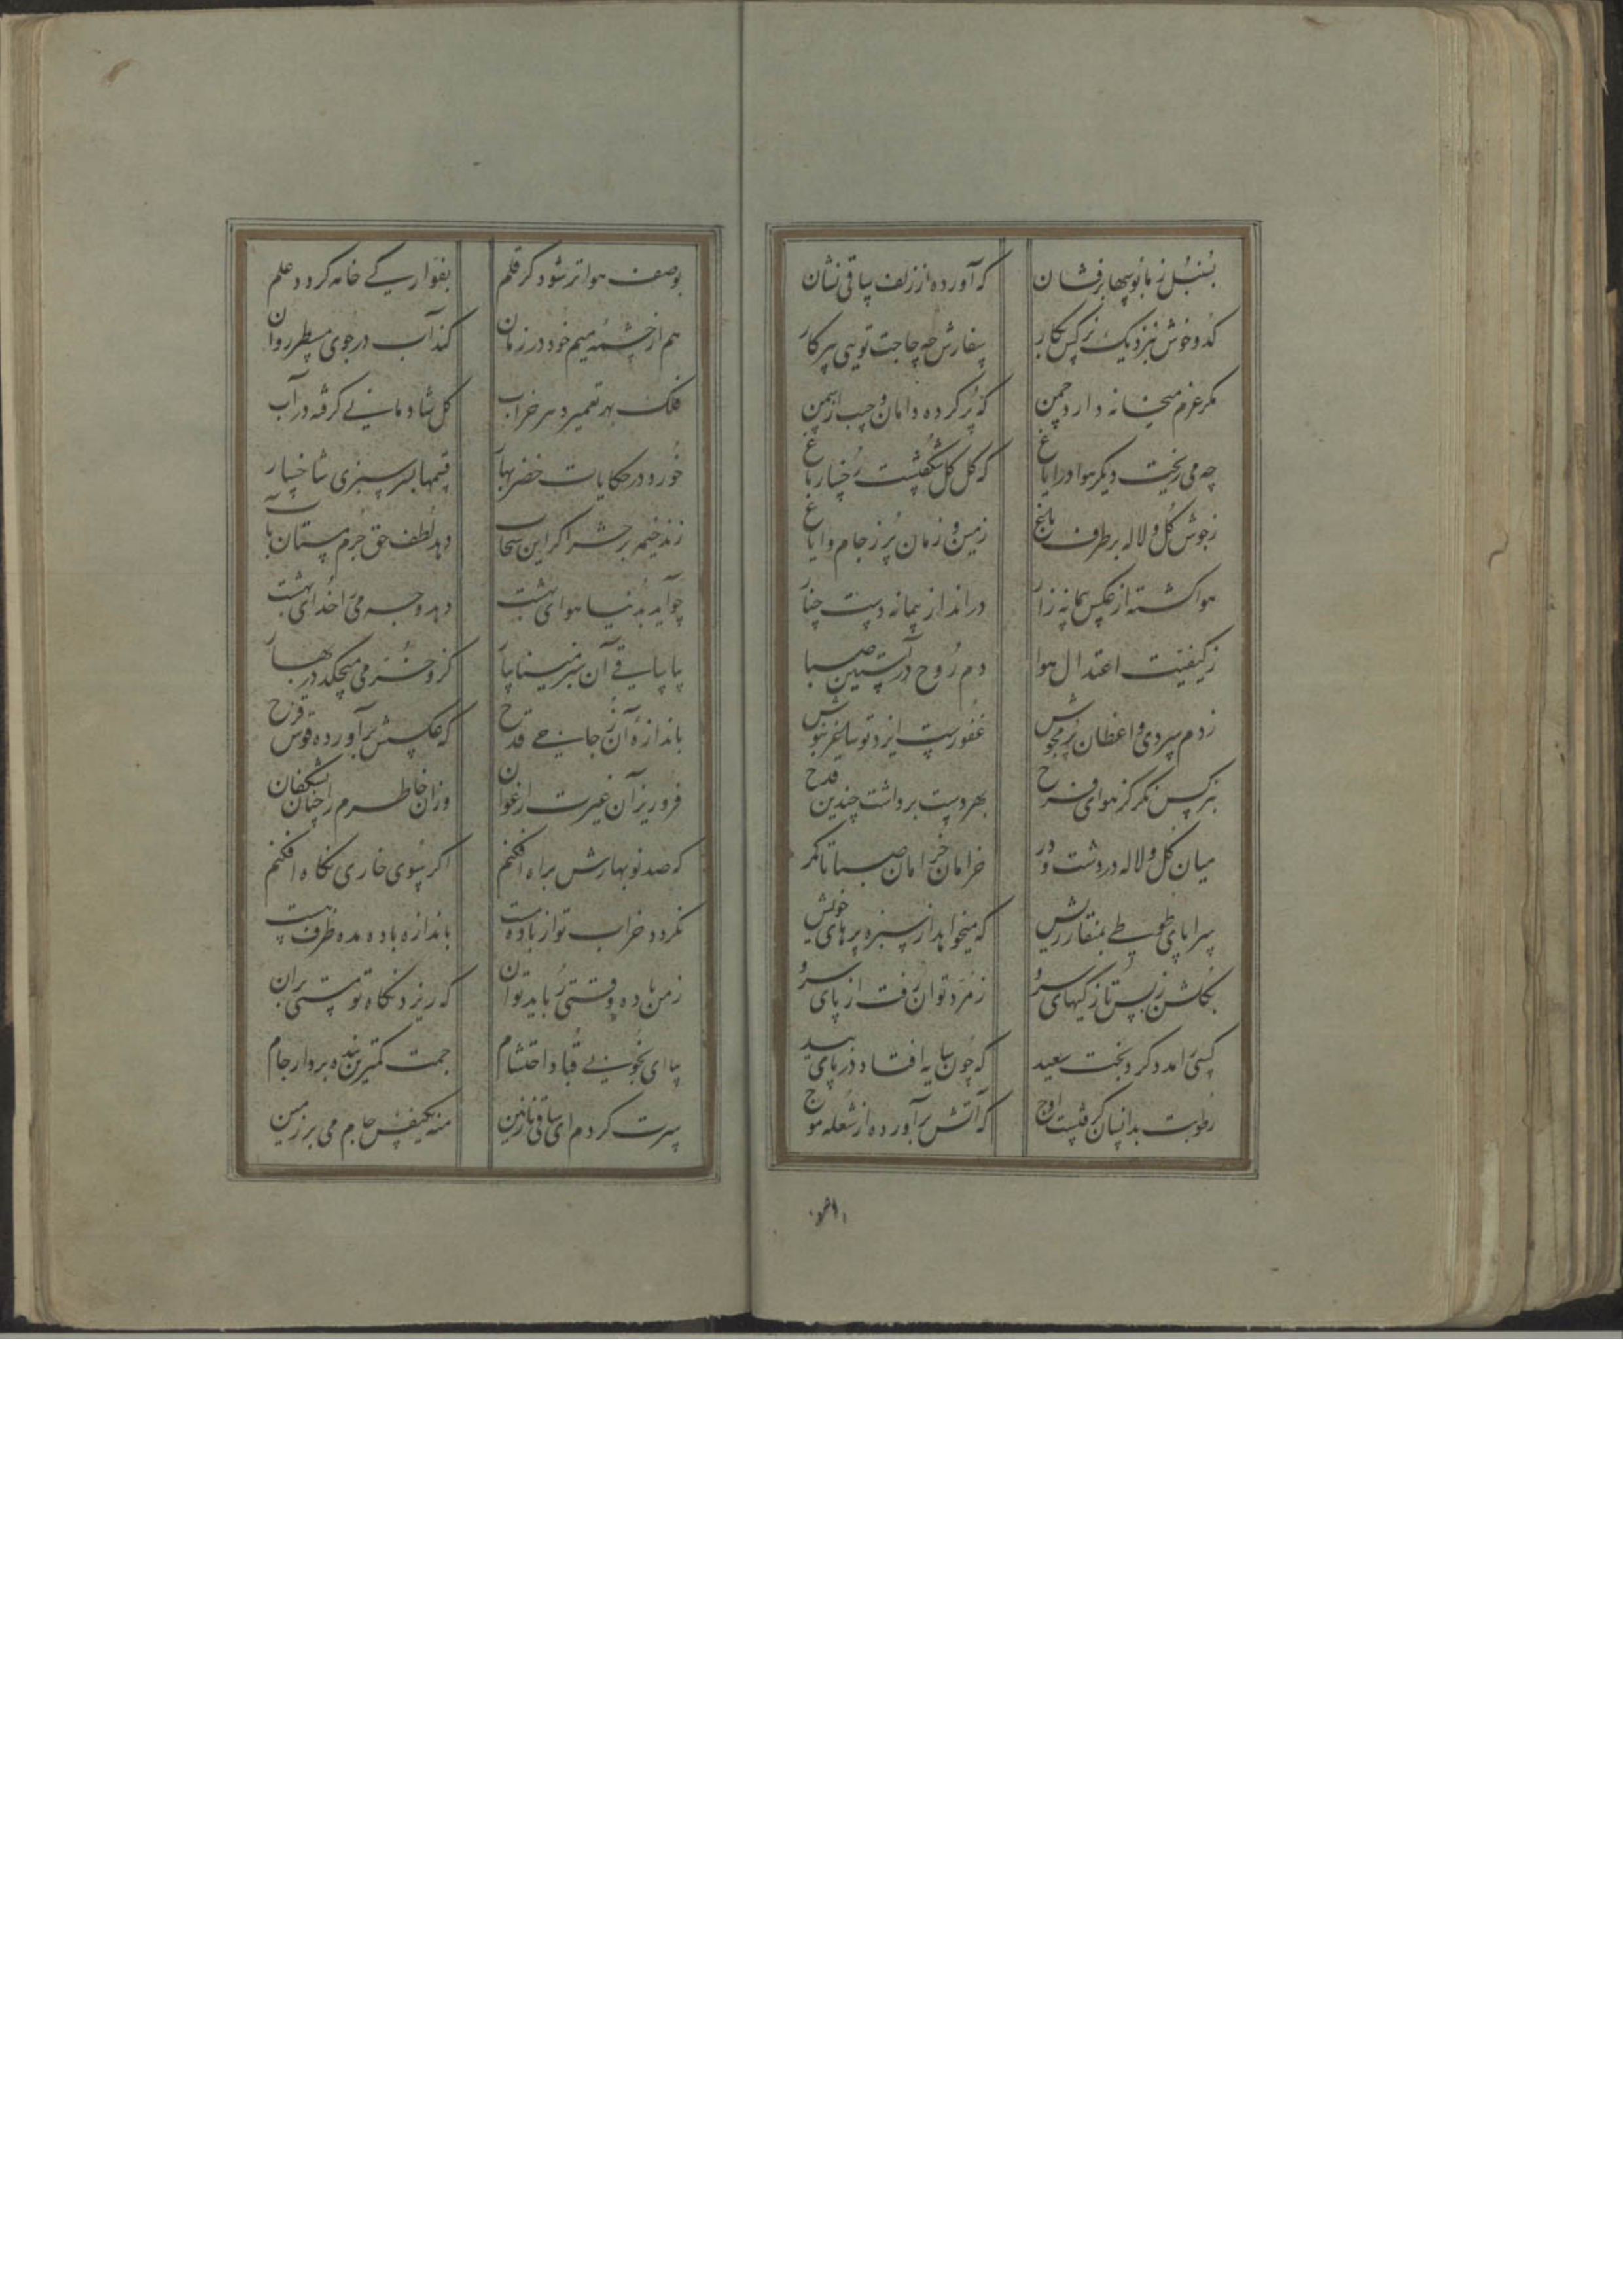 بسنبل زبانبوسها برفشان که آورده از زلف ساقی نشان
کدو خوش بنزدیک نرکس بکار سفارش چه حاجت تویی پیرکار
مکر عزم میخانه دارد چمن که پر کرده دامان و جیب از سمن
چه می ریخت دیکر هوا در ایاغ که کل کل شکفتست رخسار باغ
زجوش کل و لاله بر طرف باغ زمین و زمان پر زجام و ایاغ
هوا کشته از عکس پیمانه زار در انداز پیمانه دست چنار
زکیفیت اعتدال هوا دم روح در آستین صبا
زدم سردی واعظان پر مجوش غفورست ایزد تو ساغر بنوش
بنرکس نکر کز هوای فرح بهر دست برداشت چندین قدح
میان کل و لاله در دشت و در خرامان خرامان صبا تا کمر
سراپای طوطی بمنقار ریش که میخواهد از سبزه پرهای خویش
بکلشن زبس تازکیهای سرو زمرد توان رفت از پای سرو
کسی را مدد کرد بخت سعید که چون سایه افتاد در پای بید
رطوبت بدانسان کرفتست اوج که آتش برآورده از شعله موج
بوصف هوا تر شود کر قلم بفوارکی خامه کردد علم
هم از چشمه میم خود در زمان کند آب در جوی مسطر روان
فلک بهر تعمیر هر خراب کل شادمانی کرفته در آب
خورد در حکایات خضر بهار قسمها بسرسبزی شاخسار
زند خیمه بر حشر اکر این سحاب دهد لطف حق جرم مستان بآب
چو آید بدنیا هوای بهشت دهد وجه می را خدای بهشت
بیا ساقی آن سبز مینا بیار کزو خرمی میچکد در بهار
باندازهٔ آن ز جانی قدح که عکسش برآورده قوس قزح
فرو ریز آن غیرت ارغوان وزان خاطرم را چنان بشکفان
که صد نوبهارش براه افکنم اکر بسوی خاری نکاه افکنم
نکردد خراب تو از باده مست باندازه باده مده ظرف هست
زمن باده وقتی رباید توان که ریزد نکاه تو مستی بران
بیا ای بخوبی قباد احتشام جمت کمترین بنده بردار جام
سرت کردم ای ساقی نازنین منه یکنفس جام می بر زمین